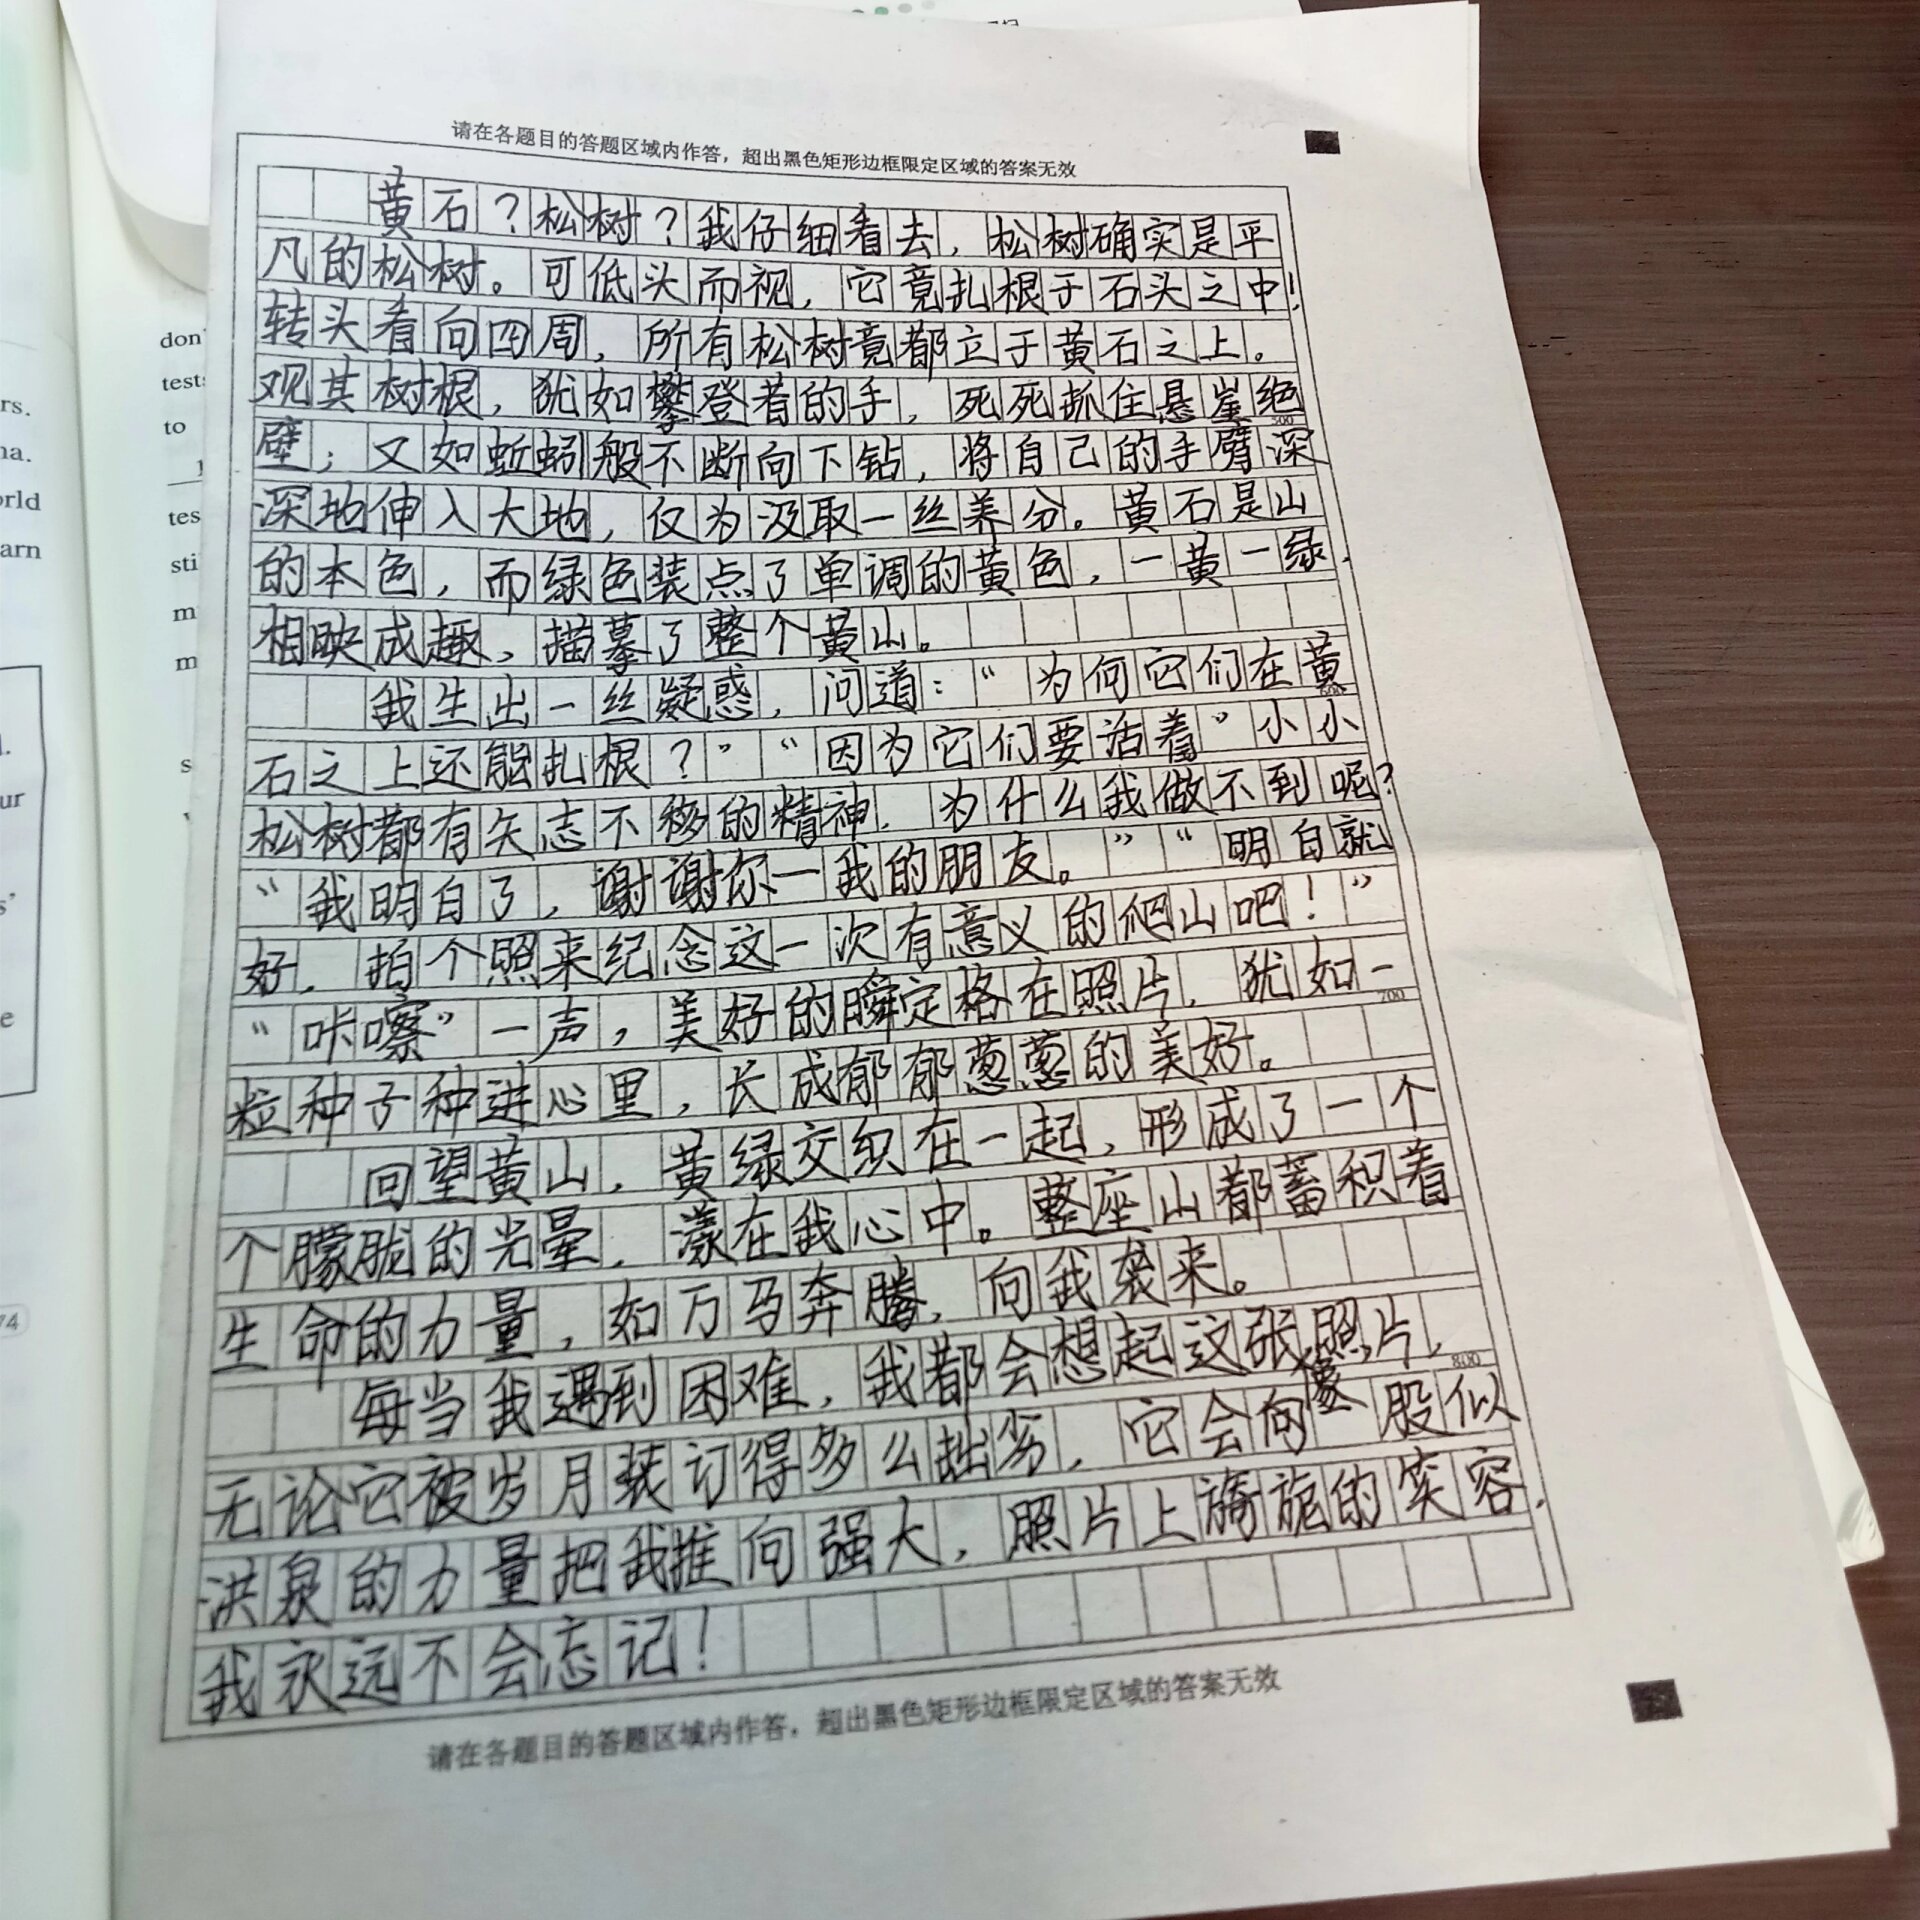 请在各题目的答题区域内作答，超出黑色矩形边框限定区域的答案无效
黄石？松树？我仔细看去，松树确实是平
凡的松树。可低头而视，它竟扎根于石头之中！
转头看向四周，所有松树竟都立于黄石之上。
观其树根，犹如攀登着的手，死死抓住悬崖绝
500
壁；又如蚯蚓般不断向下钻，将自己的手臂深
深地伸入大地，仅为汲取一丝养分。黄石是山
的本色，而绿色装点了单调的黄色，一黄一绿，
相映成趣，描摹了整个黄山。
我生出一丝疑惑，问道：“为何它们在黄
600
石之上还能扎根？”“因为它们要活着”小小
松树都有矢志不移的精神，为什么我做不到呢？
“我明白了，谢谢你一我的朋友。”“明白就
好，拍个照来纪念这一次有意义的爬山吧！”
“咔嚓”一声，美好的瞬定格在照片，犹如一
700
粒种子种进心里，长成郁郁葱葱的美好。
回望黄山，黄绿交织在一起，形成了一个
个朦胧的光晕，漾在我心中。整座山都蓄积着
生命的力量，如万马奔腾，向我袭来。
每当我遇到困难，我都会想起这张照片，
800
无论它被岁月装订得多么拙劣，它会向像股似
洪泉的力量把我推向强大，照片上旖旎的笑容，
我永远不会忘记！
请在各题目的答题区域内作答，超出黑色矩形边框限定区域的答案无效
don'
test
to
tes
sti
m
m
s
rs.
na.
orld
arn
d.
ur
s'
e
74